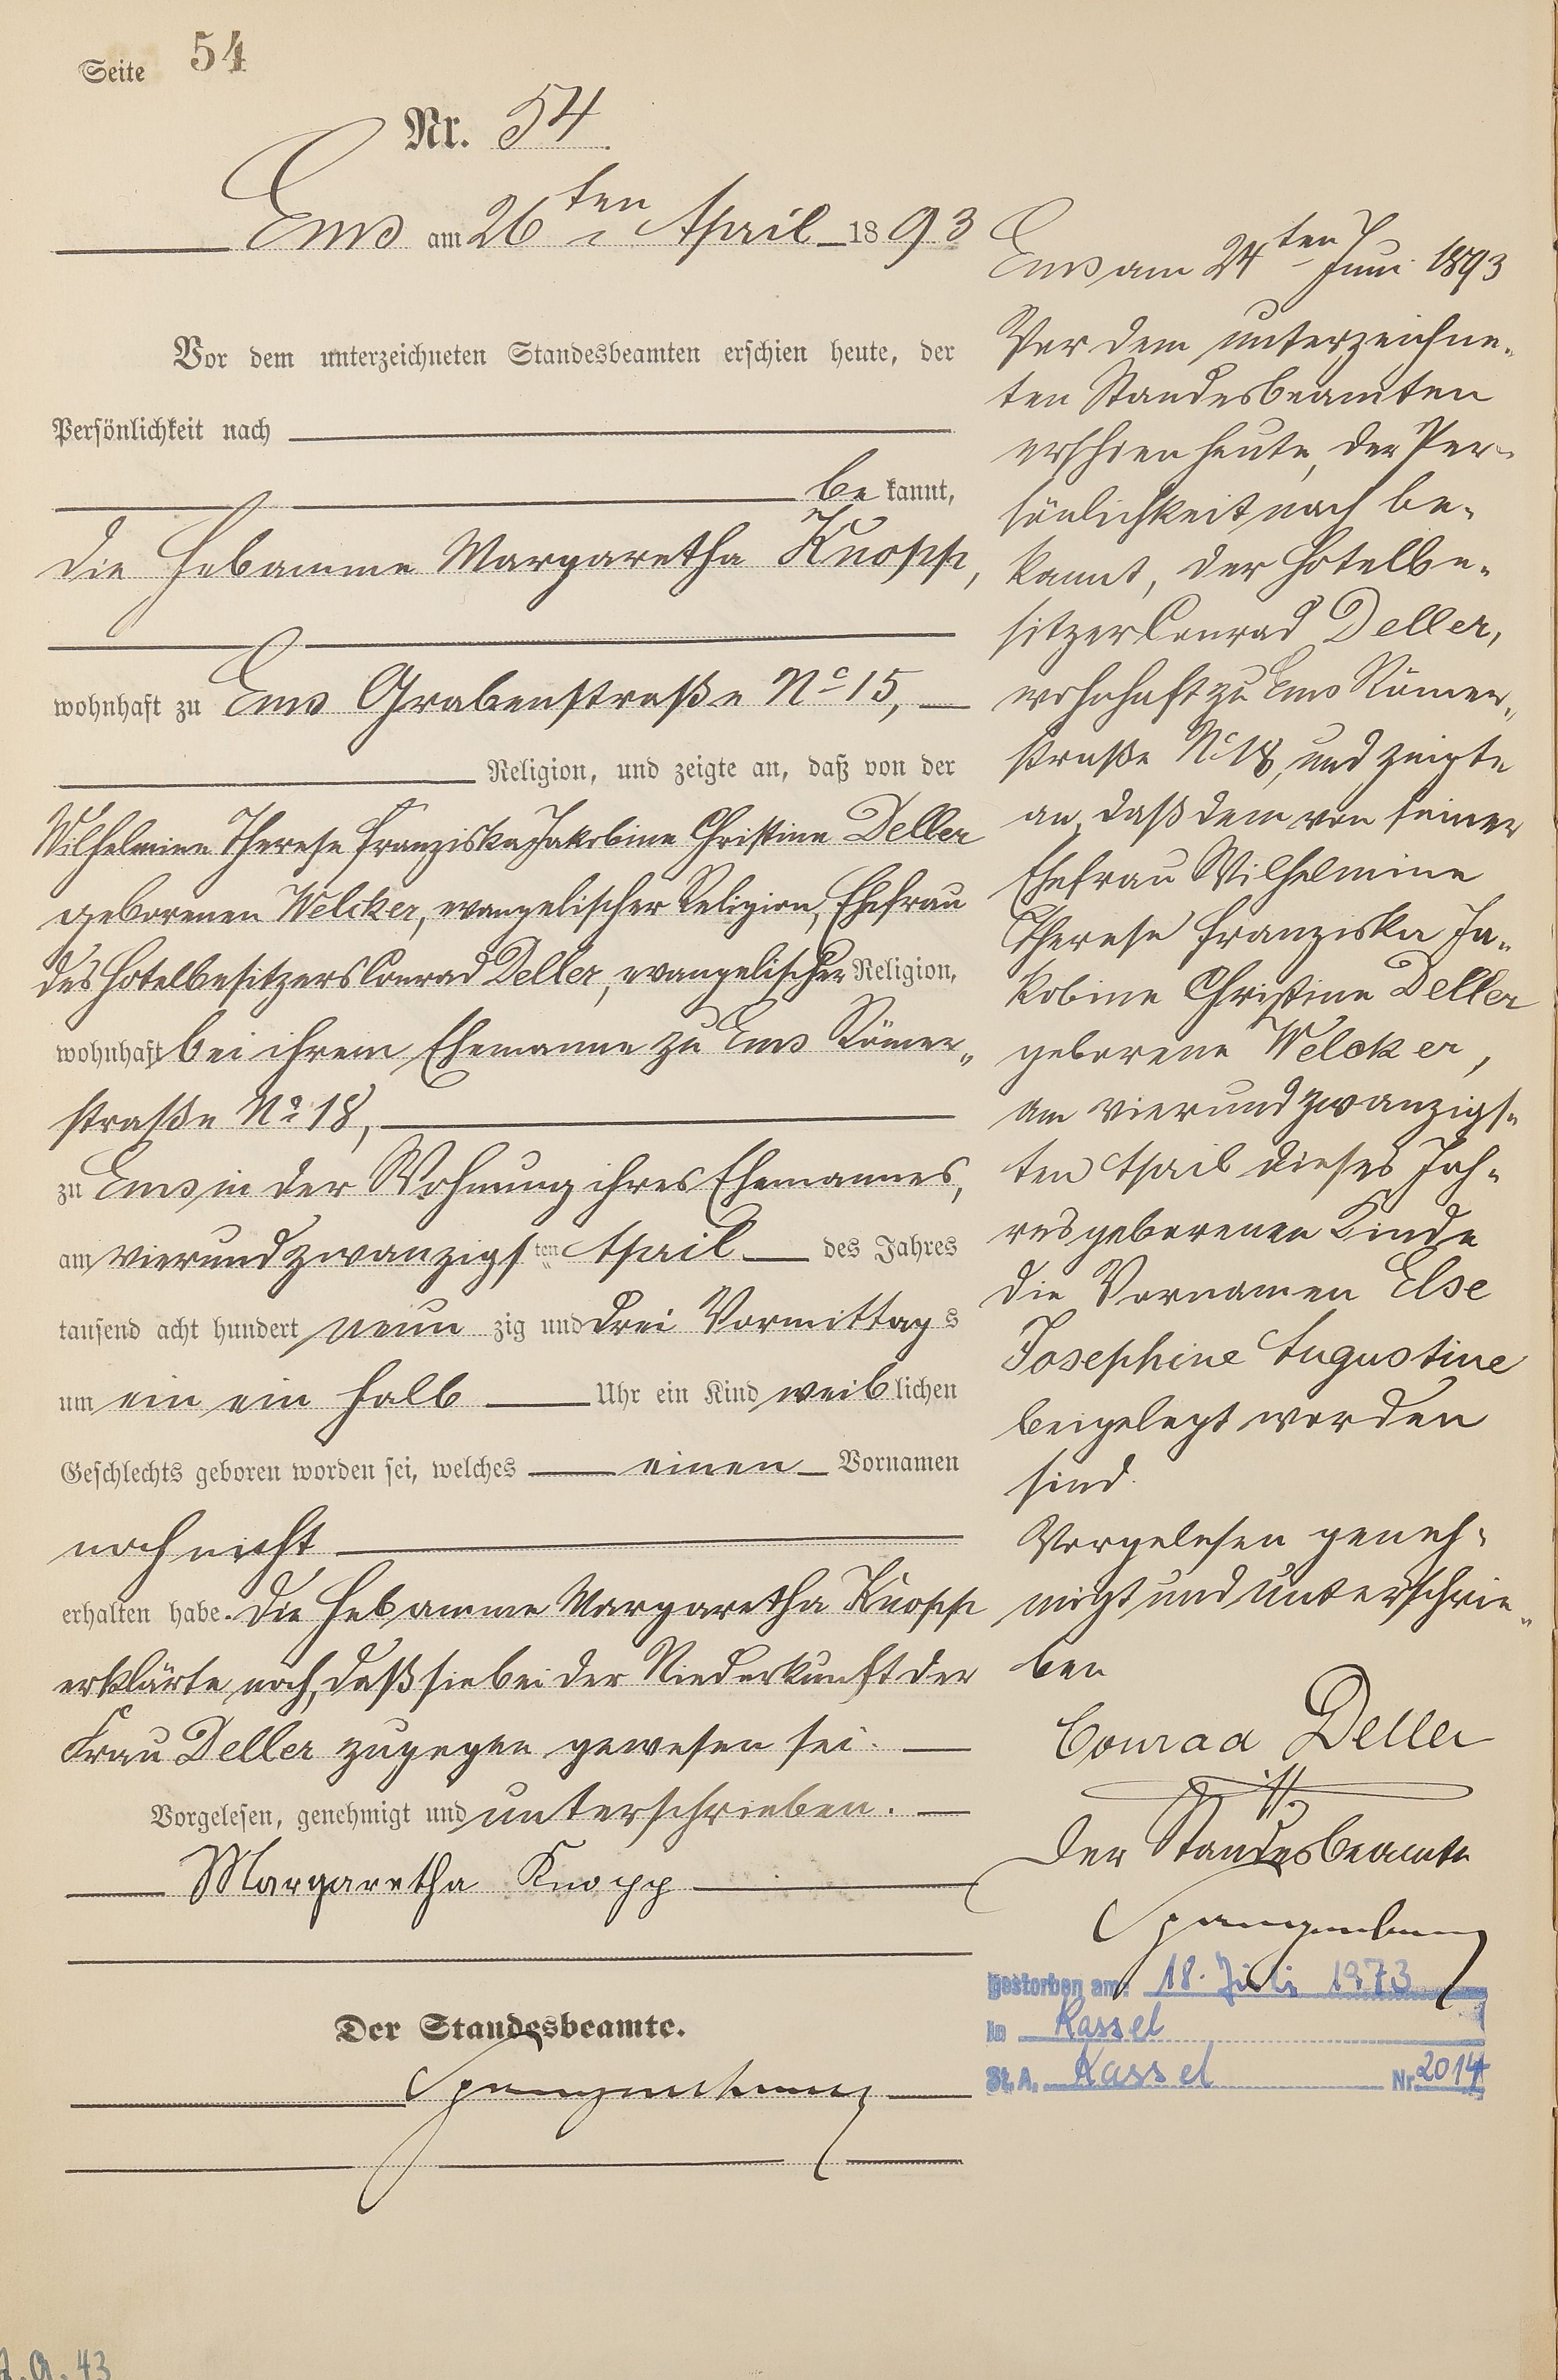 Seite 54
Nr. 54
Ems am 26ten April 1893
Vor dem unterzeichneten Standesbeamten erschien heute, der
Persönlichkeit nach
bekannt,
die Hebamme Margaretha Knopp,
wohnhaft zu Ems Grabenstraße No 15,
Religion, und zeigte an, daß von der
Wilhelmine Therese Franziska Jakobine Christine Deller
geborenen Welcker, evangelischer Religion, Ehefrau
des Hotelbesitzers Conrad Deller, evangelischer Religion,
wohnhaft bei ihrem Ehemanne zu Ems Römer„
straße No 18,
zu Ems in der Wohnung ihres Ehemannes,
am vierundzwanzigsten April des Jahres
tausend acht hundert neunzig und drei Vormittags
um ein ein halb Uhr ein Kind weiblichen
Geschlechts geboren worden sei, welches einen Vornamen
noch nicht
erhalten habe. Die Hebamme Margaretha Knopp
erklärte noch, daß sie bei der Niederkunft der
Frau Deller zugegen gewesen sei.
Vorgelesen, genehmigt und unterschrieben.
Margaretha Knopp
Der Standesbeamte.
Spangenberg
Ems am 24ten Juni 1893
Vor dem unterzeichne„
ten Standesbeamten
erschien heute, der Per„
sönlichkeit nach be„
kannt, der Hotelbe„
sitzer Conrad Deller,
wohnhaft zu Ems Römer„
straße No 18, und zeigte
an, daß dem von seiner
Ehefrau Wilhelmine
Therese Franziska Ja„
kobine Christine Deller
geborene Welcker,
am vierundzwanzigs„
ten April dieses Jah„
res geborenen Kinde
die Vornamen Else
Josephine Augustine
beigelegt worden
sind.
Vorgelesen geneh„
migt und unterschrie„
ben
Conrad Deller
Der Standesbeamte
Spangenberg
Gestorben am: 18. Juli 1973
in Kassel
St. A. Kassel Nr. 2014